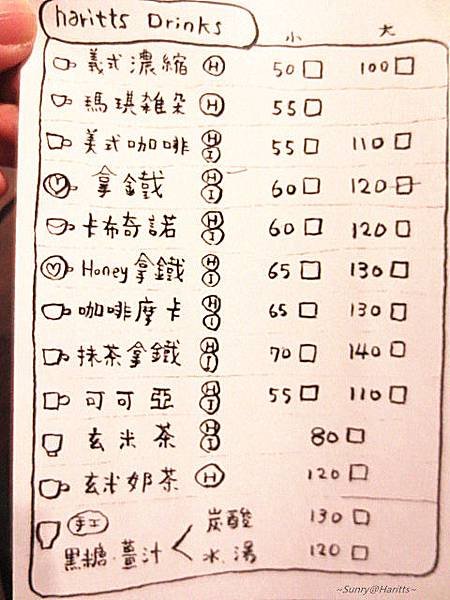 haritts Drinks
小 大
義式濃縮 H 50 100
瑪琪雑朵 H 55
美式咖啡 H I 55 110
拿鐵 H I 60 120
卡布奇諾 H I 60 120
Honey拿鐵 H I 65 130
咖啡摩卡 H I 65 130
抹茶拿鐵 H I 70 140
可可亞 H I 55 110
玄米茶 H I 80
玄米奶茶 H 120
手工 炭酸 130
黑糖.薑汁 水.湯 120
~Sunry@Haritts~